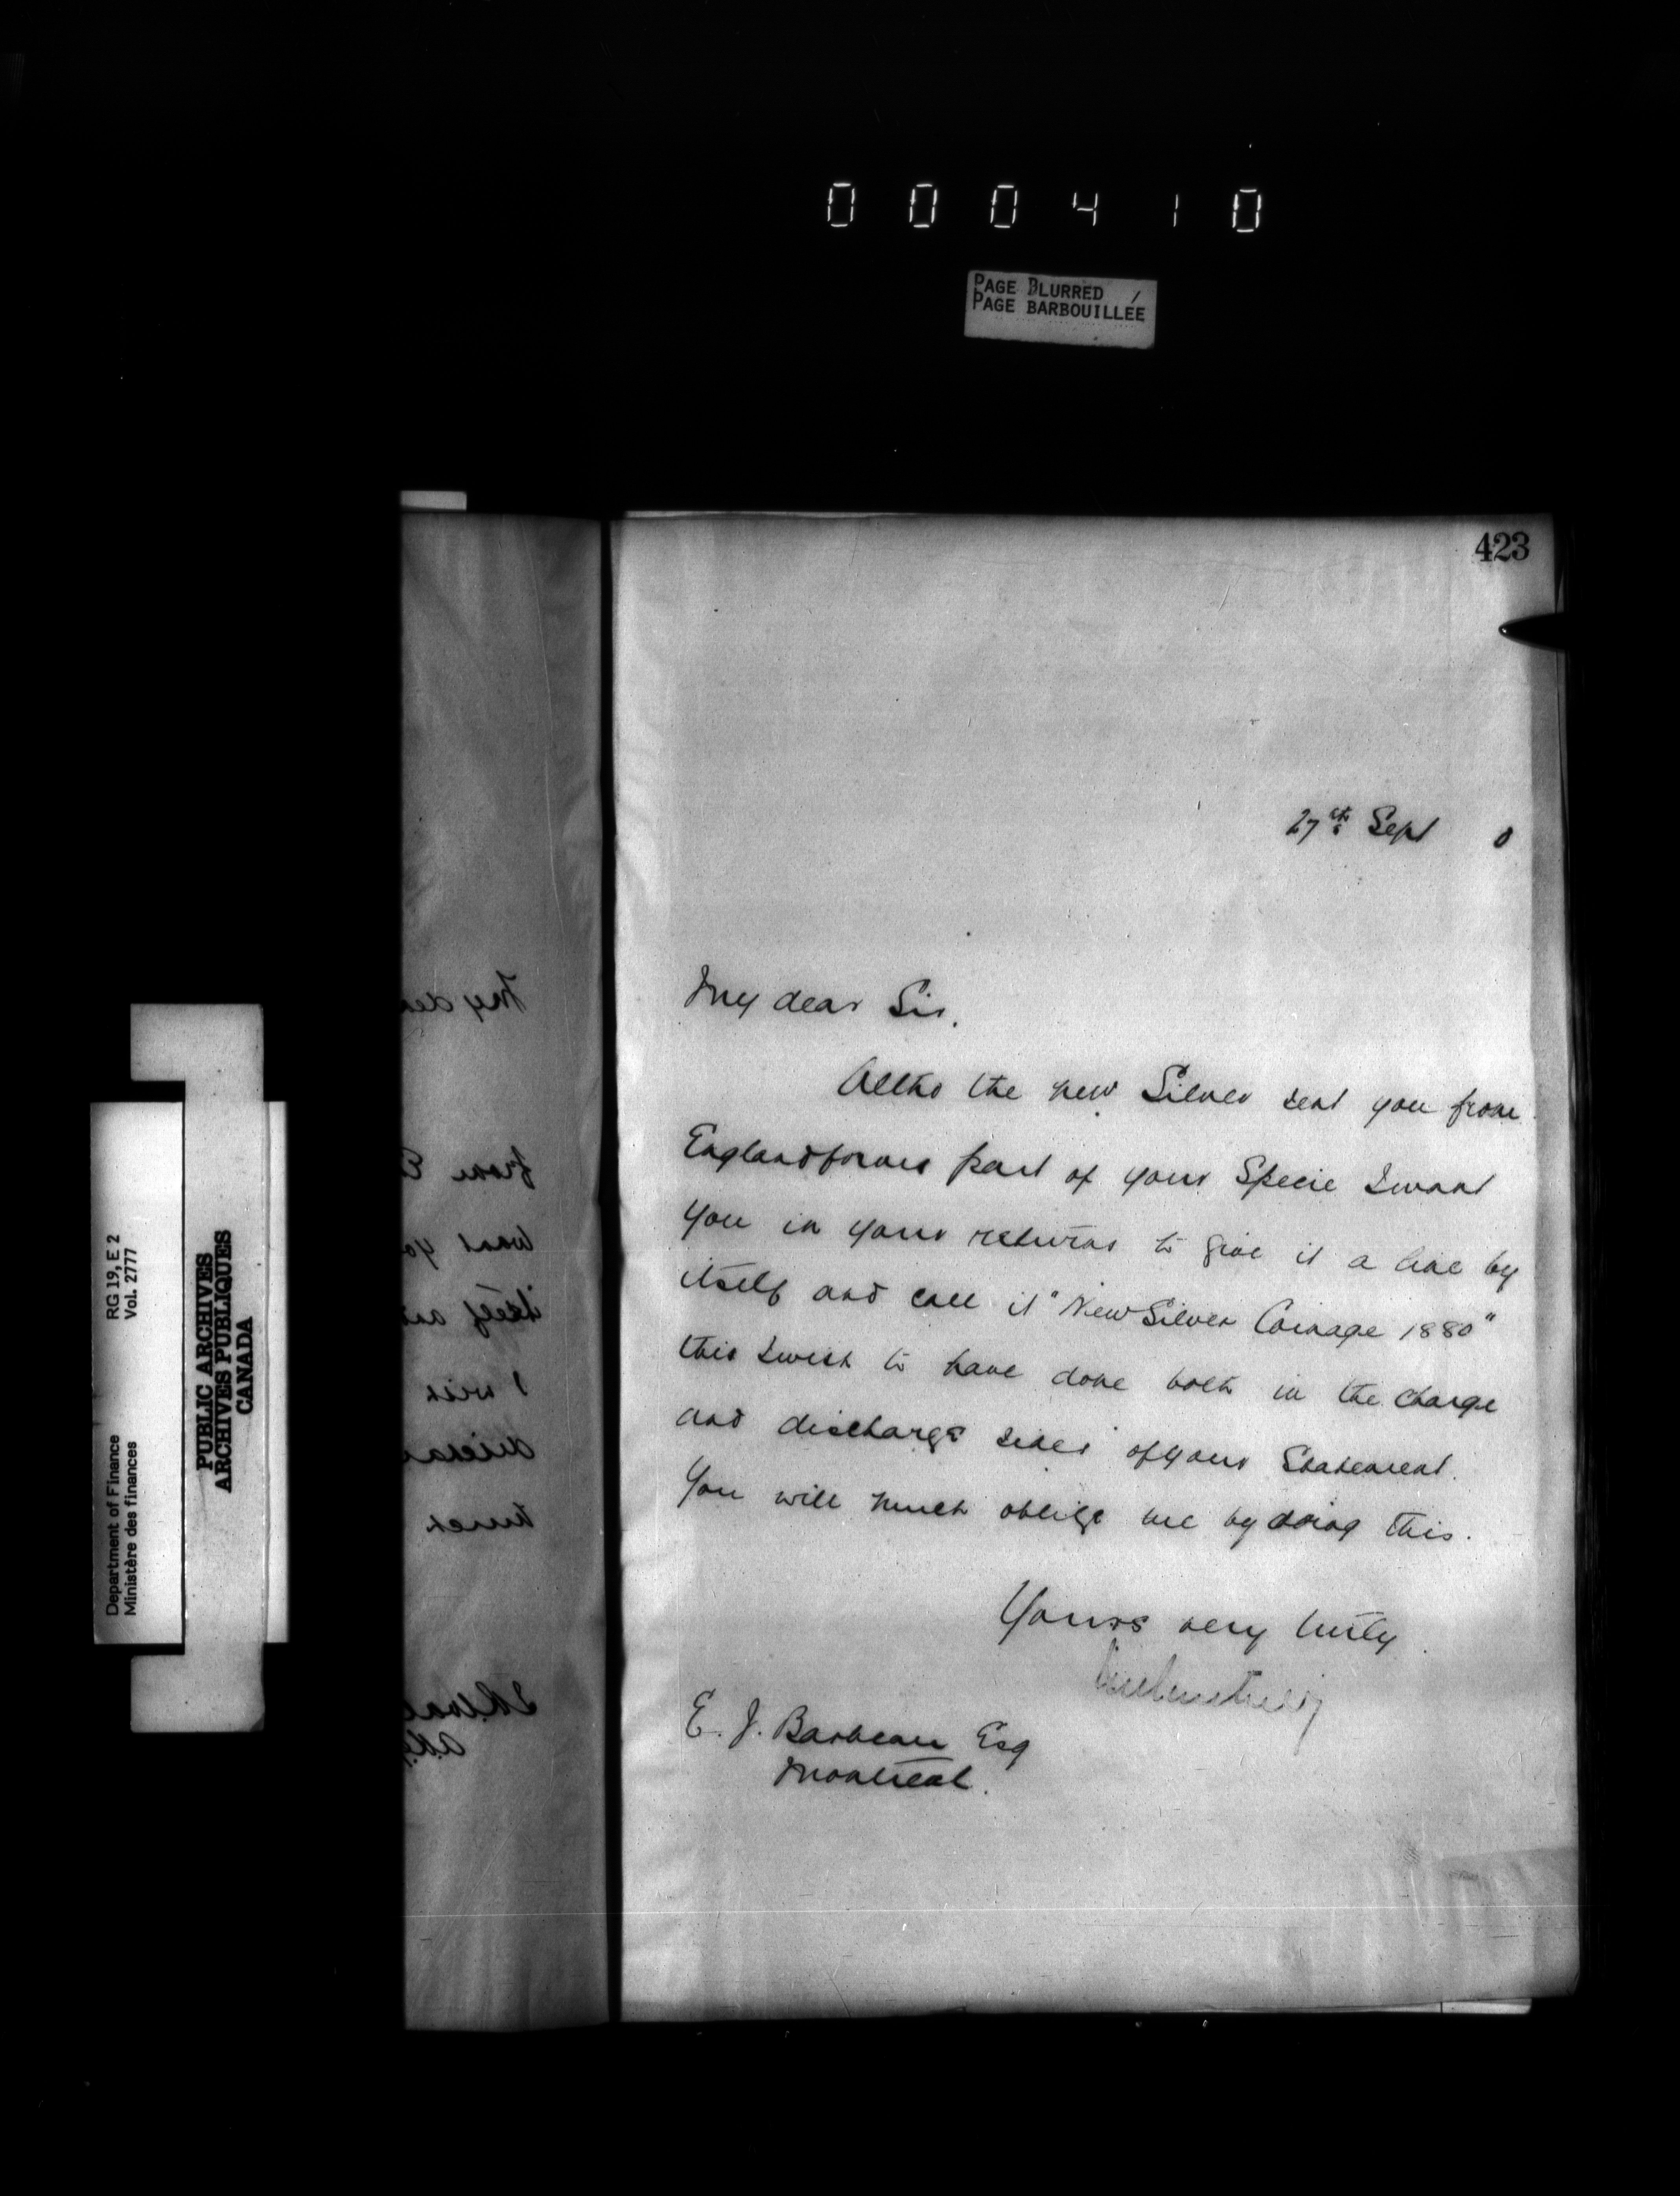 000410
PAGE BLURRED /
PAGE BARBOUILLÉE
423
27th Sept 0
My dear Sir,
Altho the new Silver sent you from
England forms part of your Specie I want
you in your returns to give it a line by
itself and call it "New Silver Coinage 1880"
this I wish to have done both in the charge
and discharge sides of your Statement.
You will much oblige me by doing this.
Yours very truly
E. J. Barbeau Esq
Montreal.
My dea
from E
want yo
itself an
I wish
much
Department of Finance RG 19, E 2
Ministère des finances Vol. 2777
PUBLIC ARCHIVES
ARCHIVES PUBLIQUES
CANADA